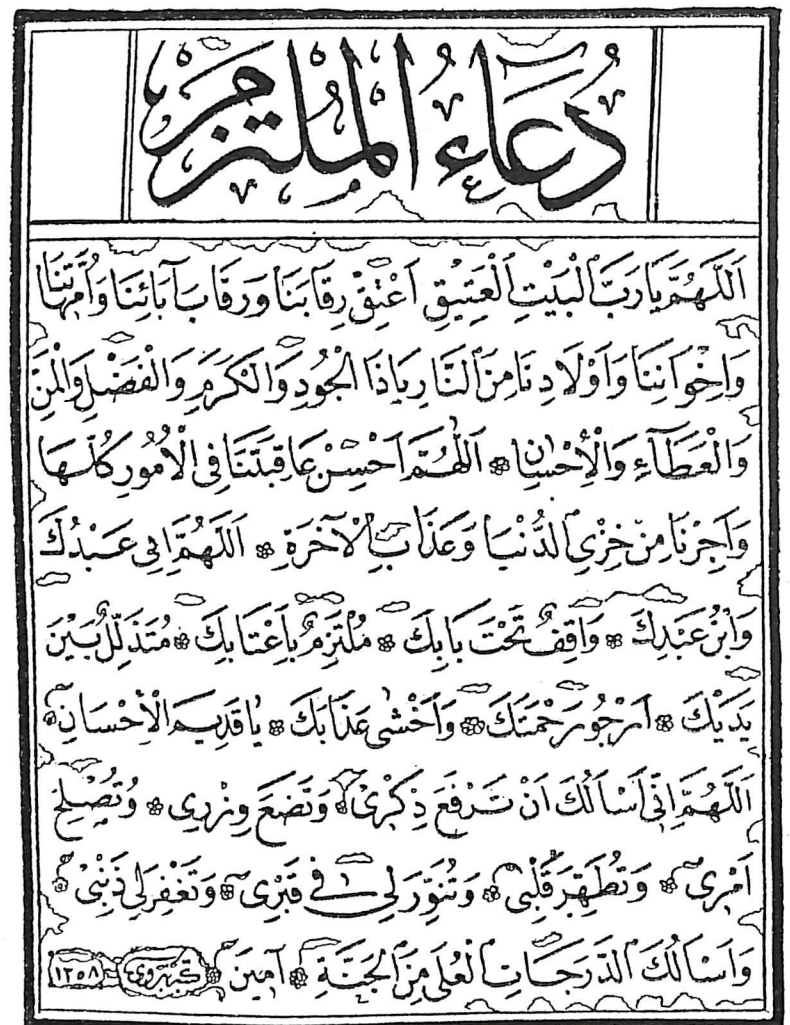 دُعَاءُ الْمُلْتَزَمْ
اَللَّهُمَّ يَا رَبَّ الْبَيْتِ الْعَتِيْقِ اَعْتِقْ رِقَابَنَا وَرِقَابَ آبَائِنَا وَاُمَّهَاتِنَا
وَاِخْوَانِنَا وَاَوْلَادِنَا مِنَ النَّارِ يَا ذَا الْجُودِ وَالْكَرَمِ وَالْفَضْلِ وَالْمَنِّ
وَالْعَطَآءِ وَالْاِحْسَانِ ۞ اَللّٰهُمَّ اَحْسِنْ عَاقِبَتَنَا فِى الْاُمُورِ كُلِّهَا
وَاَجِرْنَا مِنْ خِزْىِ الدُّنْيَا وَعَذَابِ الْآخِرَةِ ۞ اَللَّهُمَّ اِنِّى عَبْدُكَ
وَابْنُ عَبْدِكَ ۞ وَاقِفٌ تَحْتَ بَابِكَ ۞ مُلْتَزِمٌ بِاَعْتَابِكَ ۞ مُتَذَلِّلٌ بَيْنَ
يَدَيْكَ ۞ اَرْجُو رَحْمَتَكَ ۞ وَاَخْشٰى عَذَابَكَ ۞ يَا قَدِيمَ الْاِحْسَانِ ۞
اَللَّهُمَّ اِنِّى اَسْاَلُكَ اَنْ تَرْفَعَ ذِكْرِىْ ۞ وَتَضَعَ وِزْرِى ۞ وَتُصْلِحَ
اَمْرِى ۞ وَتُطَهِّرَ قَلْبِى ۞ وَتُنَوِّرَ لِى فِى قَبْرِى ۞ وَتَغْفِرَ لِى ذَنْبِىْ ۞
وَاَسْاَلُكَ الدَّرَجَاتِ الْعُلَى مِنَ الْجَنَّةِ ۞ آمِينَ ۞ ١٣٥٨